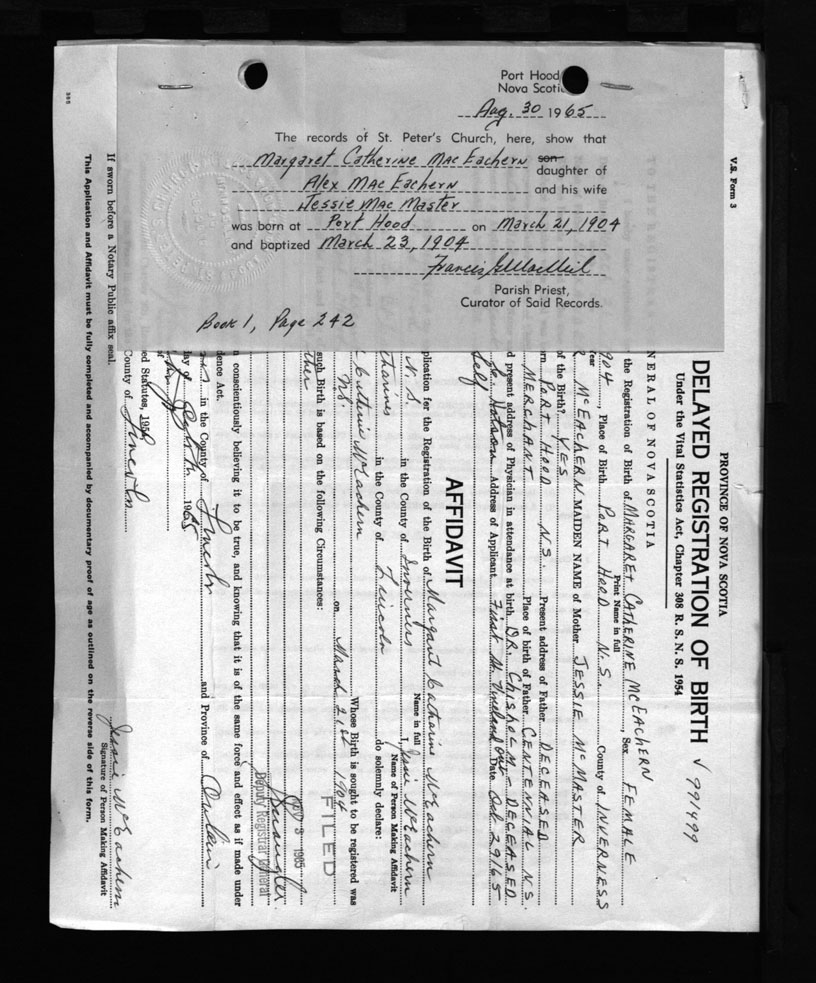 Port Hood
Nova Scoti
Aug. 30 1965
The records of St. Peter's Church, here, show that
Margaret Catherine MacEachern son daughter of
Alex MacEachern and his wife
Jessie MacMaster
was born at Port Hood on March 21, 1904
and baptized March 23, 1904
Parish Priest,
Curator of Said Records.
Book 1, Page 242
V.S. Form 3
PROVINCE OF NOVA SCOTIA
DELAYED REGISTRATION OF BIRTH √ 991499
Under the Vital Statistics Act, Chapter 308 R. S. N. S. 1954
NERAL OF NOVA SCOTIA
the Registration of Birth of MARGARET CATHERINE McEACHERN, Sex FEMALE
Print Name in full
904, Place of Birth PORT HOOD N.S. County of INVERNESS
Year
McEACHERN MAIDEN NAME of Mother JESSIE McMASTER
of the Birth? YES
rn PORT HOOD N.S. Present address of Father DECEASED
MERCHANT Place of birth of Father CENTENNIAL N.S.
d present address of Physician in attendance at birth DR. CHISHOLM - DECEASED
Address of Applicant First Vineland Ont Date Oct 29/65
Self
AFFIDAVIT
plication for the Registration of the Birth of Margaret Catharine McEachern
Name in full
N.S. in the County of Inverness I, McEachern
Name of Person Making Affidavit
tharines in the County of Lincoln do solemnly declare:
Catherine McEachern Whose Birth is sought to be registered was
N.S. on March 21st 1904
such Birth is based on the following Circumstances:
ther
FILED
3 1965
Deputy Registrar General
n conscientiously believing it to be true, and knowing that it is of the same force and effect as if made under
dence Act.
in the County of Lincoln and Province of Ontario
ay of Sept. 1965
of
ed Statutes, 1954
County of Lincoln
Jessie McEachern
Signature of Person Making Affidavit
If sworn before a Notary Public affix seal.
This Application and Affidavit must be fully completed and accompanied by documentary proof of age as outlined on the reverse side of this form.